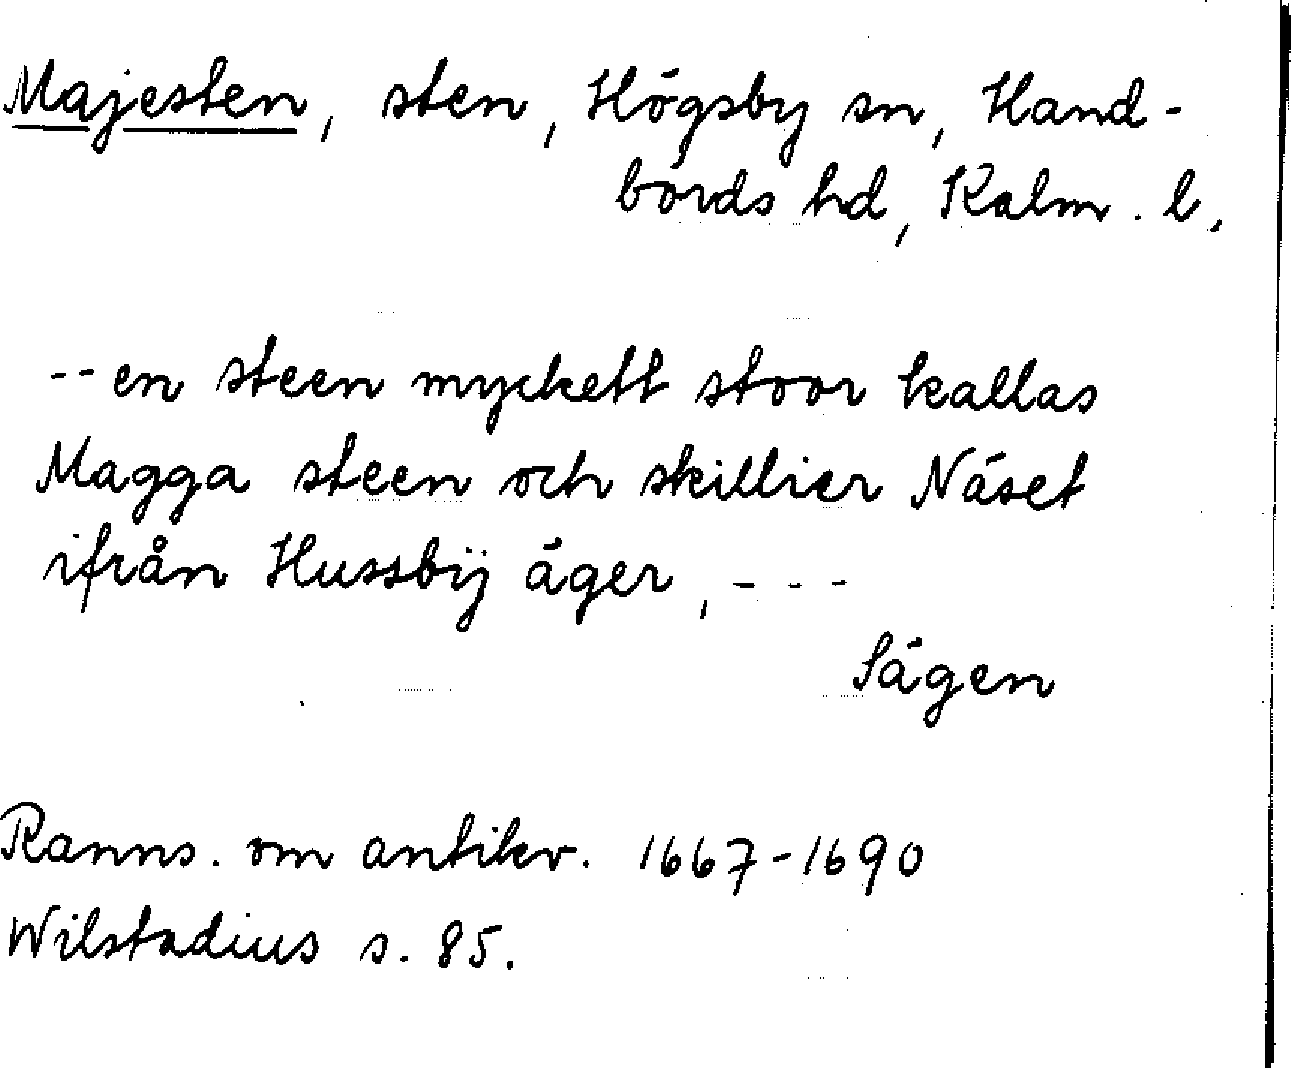 Majesten, sten, Högsby sn, Hand-
börds hd, Kalm. l.
-- en steen myckett stoor kallas
Magga steen och skillier Näset
ifrån Hussbÿ äger, - - -
Sägen
Ranns. om antikv. 1667-1690
Wilstadius s. 85.